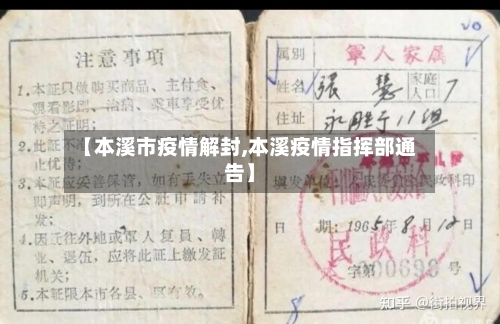 注意事项
1.本证只做购买商品、主付食、
观看影剧、治病、乘车享受优
待之证明;
2.此证不准
止优待。
3.本证应妥善保管,如有丢失立
即声明,到所在公社申请补
发;
4.因迁往外地或军人复员、转
业、退伍,应将此证上缴发证
机关。
5.本证限本市各县、区有效。
【本溪市疫情解封,本溪疫情指挥部通
告】
属别 军人家属
姓名 张 家庭人口 7
住址 永胜于11组
填发单位:
日 期:1965年8月12日
民政科
字第 000698 号
知乎 @街拍视界